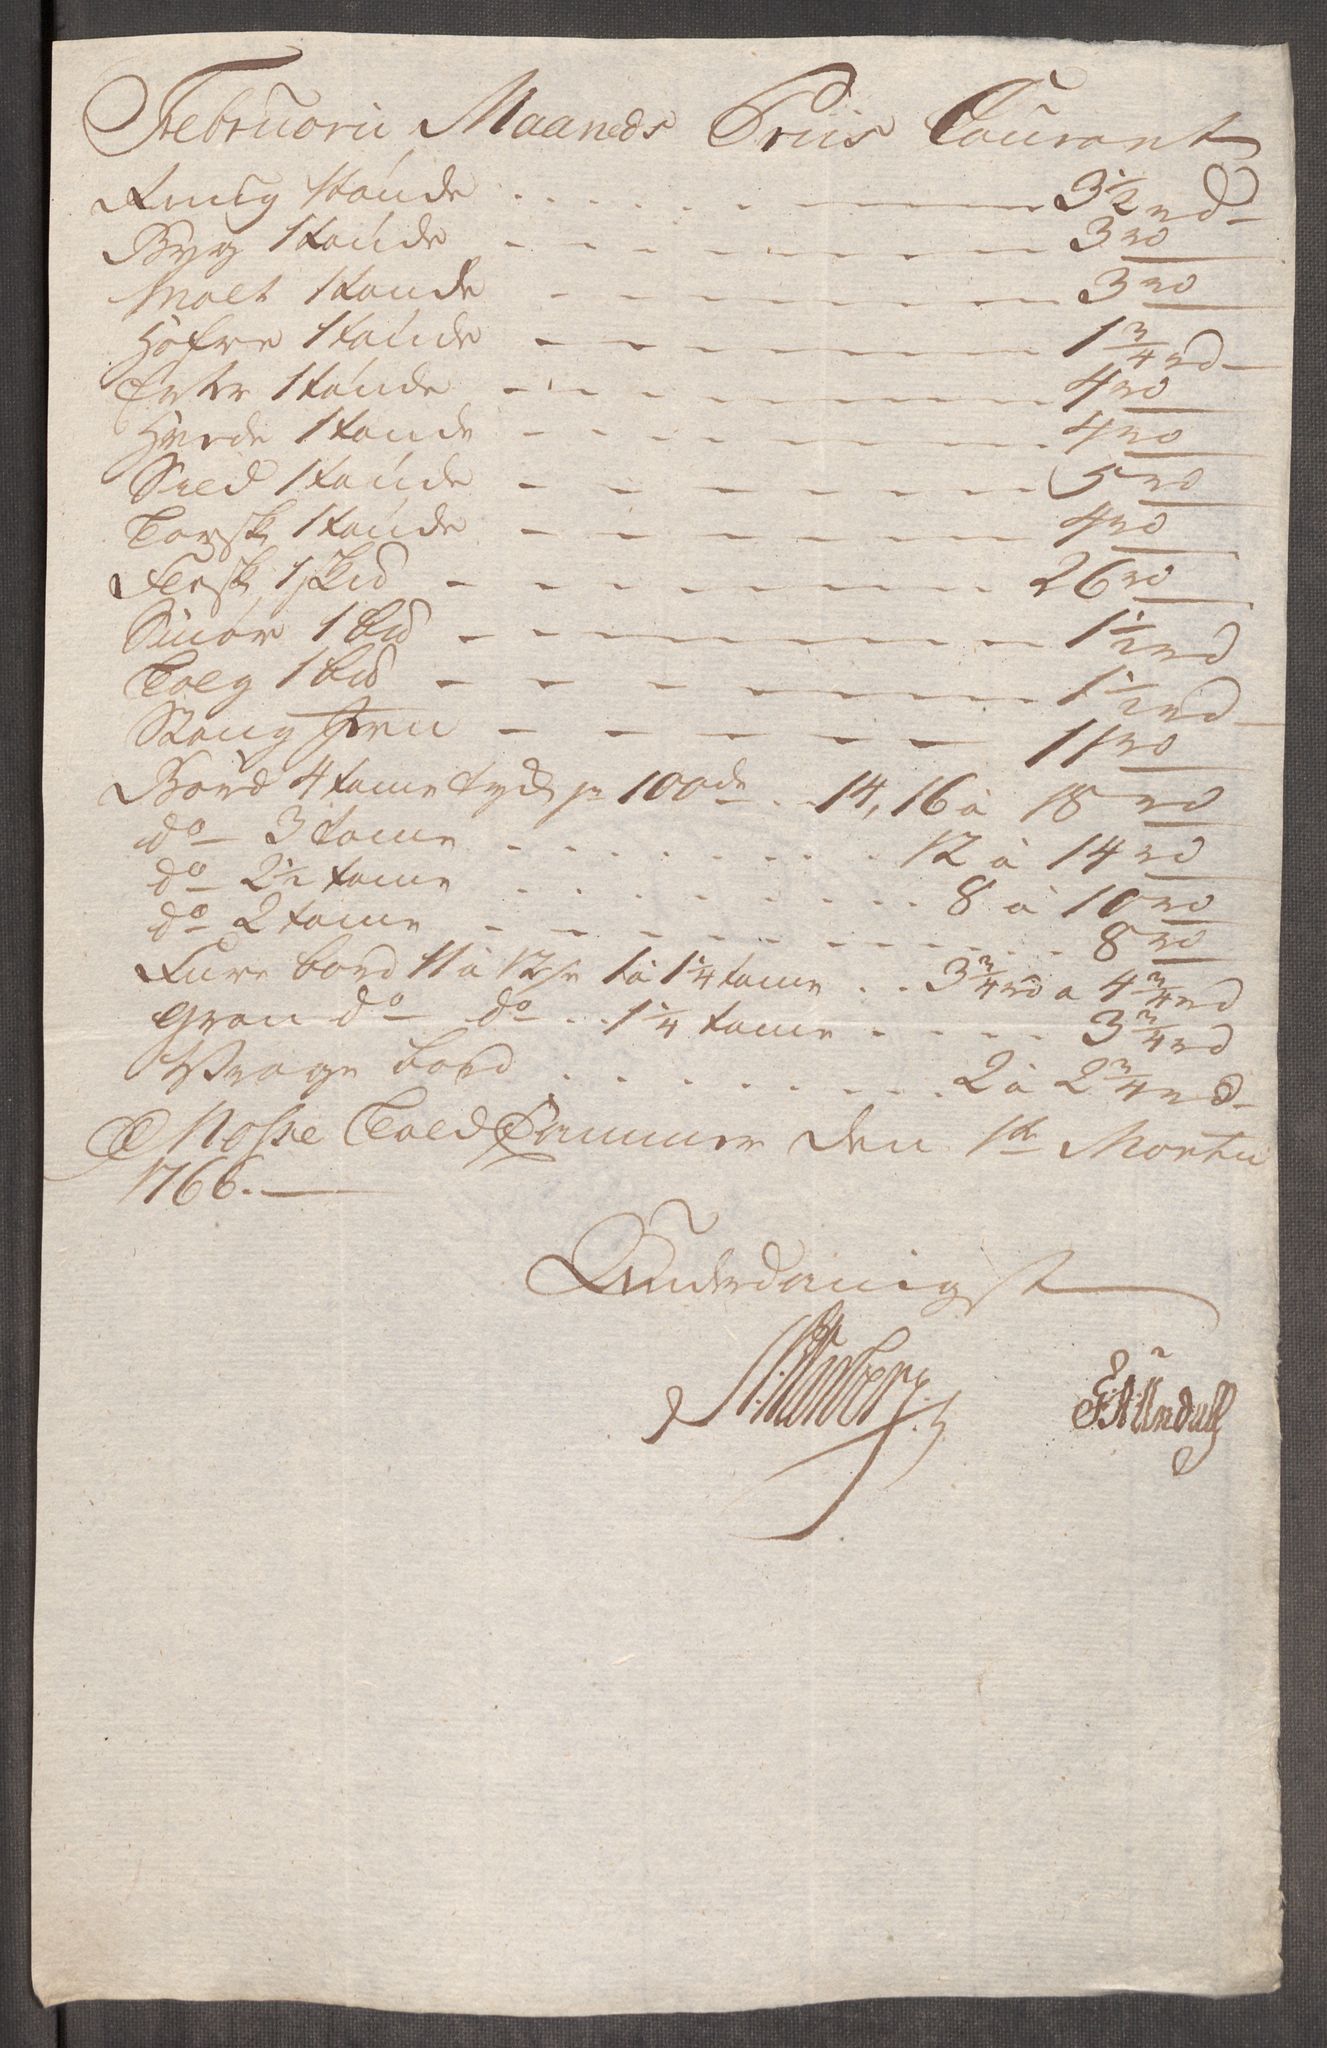 Februarii Maaneds Priis Courant
Rueg 1 tønde . . . . . . 3 1/2 rd
Byg 1 tønde - - - - - - 3 rd
Malt 1 tønde - - - - - - 3 rd
Hafre 1 tønde - - - - - - 1 3/4 rd
Erter 1 tønde - - - - - - 4 rd
Hvede 1 tønde - - - - - - 4 rd
Sild 1 tønde - - - - - - 5 rd
Torsk 1 tønde - - - - - - 4 rd
Flesk 1 sk℔d - - - - - - 26 rd
Smør 1 b℔d - - - - - - 1 1/2 rd
Talg 1 b℔d - - - - - - 1 1/2 rd
Stang Jern - - - - - 11 rd
Bord 4 tome tyk pr 100de . . 14, 16 à 18 rd
do 3 tome . . . . . . . . 12 à 14 rd
do 2 1/2 tome . . . . . . . . 8 à 10 rd
do 2 tome - - - - - - . . . 8 rd
Fure bord 11 à 12 f 1 à 1 1/4 tome . . 3 3/4 rd a 4 3/4 rd
Gran do do . . 1 1/4 tome . . . . 3 3/4 rd
Vrage bord . . . . . . . . 2 à 2 3/4 rd
Mosse Told Cammer den 1te Martii
1766.
Underdanigst